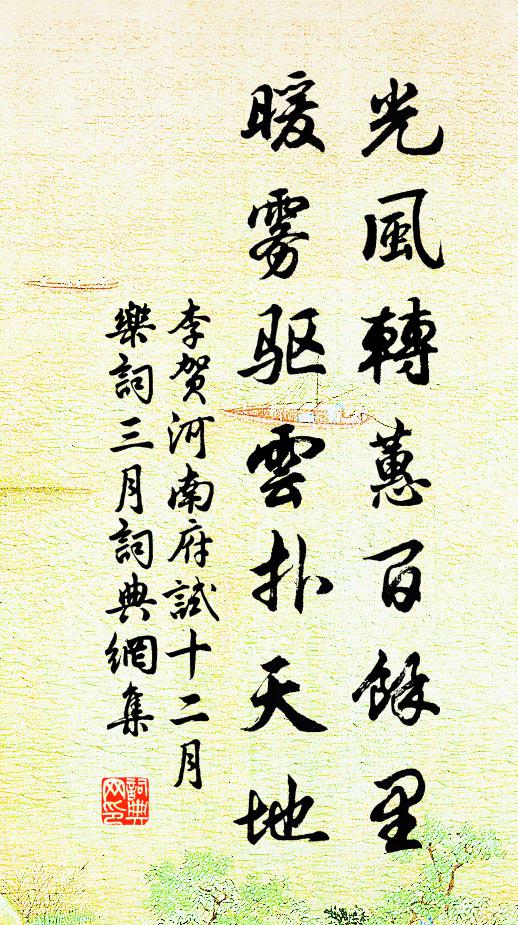 光風轉蕙百餘里
暖雾驱雲扑天地
李贺河南府試十二月
樂詞三月詞典網集
詞典网印